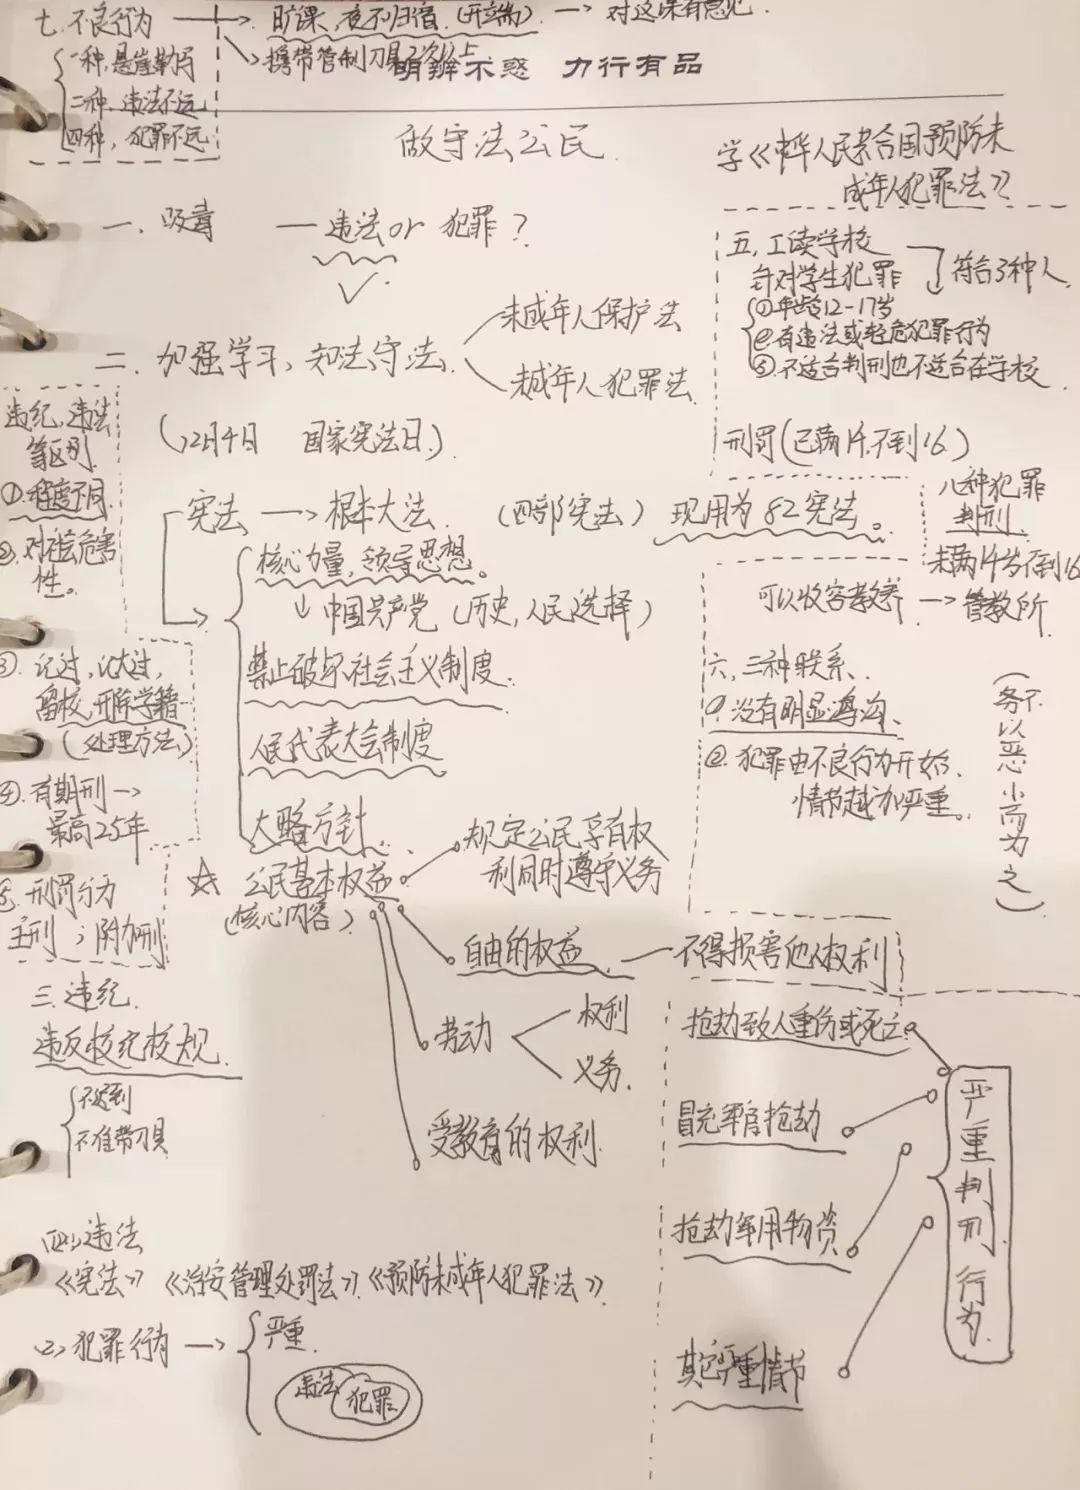 七.不良行为
旷课、夜不归宿.(开端)
→ 对这课有意见.
携带管制刀具2次以上
一种,悬崖勒马
二种、违法不远
四种,犯罪不远
明辨不惑 力行有品
做守法公民.
学《中华人民共和国预防未
成年人犯罪法》
一.吸毒 — 违法or 犯罪?
✓
二.加强学习、知法守法.
未成年人保护法
未成年人犯罪法
(12月4日 国家宪法日.)
宪法 → 根本大法. (四部宪法) 现用为82宪法。
核心力量,领导思想。
↓ 中国共产党 (历史,人民选择)
禁止破坏社会主义制度.
人民代表大会制度
大略方针.
☆ 公民基本权益
(核心内容)
规定公民享有权
利同时遵守义务
自由的权益. — 不得损害他人权利
劳动
权利
义务.
受教育的权利.
违纪,违法
等区别.
①.程度不同.
②.对社会危害
性。
③.记过,记大过,
留校,开除学籍
(处理方法)
④.有期刑→
最高25年
刑罚分为
主刑;附加刑
三.违纪.
违反校纪校规.
不迟到
不准带刀具
四,违法
《宪法》《治安管理处罚法》《预防未成年人犯罪法》
犯罪行为 →
严重.
违法
犯罪
五,工读学校
针对学生犯罪
符合3种人
①.年龄12-17岁
②有违法或轻危犯罪行为
③.不适合判刑也不适合在学校
刑罚(已满14.不到16)
八种犯罪
判刑.
未满14岁不到16
可以收容教养 → 管教所
六,三种联系、
①.没有明显鸿沟、
②.犯罪由不良行为开始.
情节越加严重。
(不以恶小而为之)
抢劫致人重伤或死亡
冒充军官抢劫
抢劫军用物资
其它严重情节
严重判刑行为.